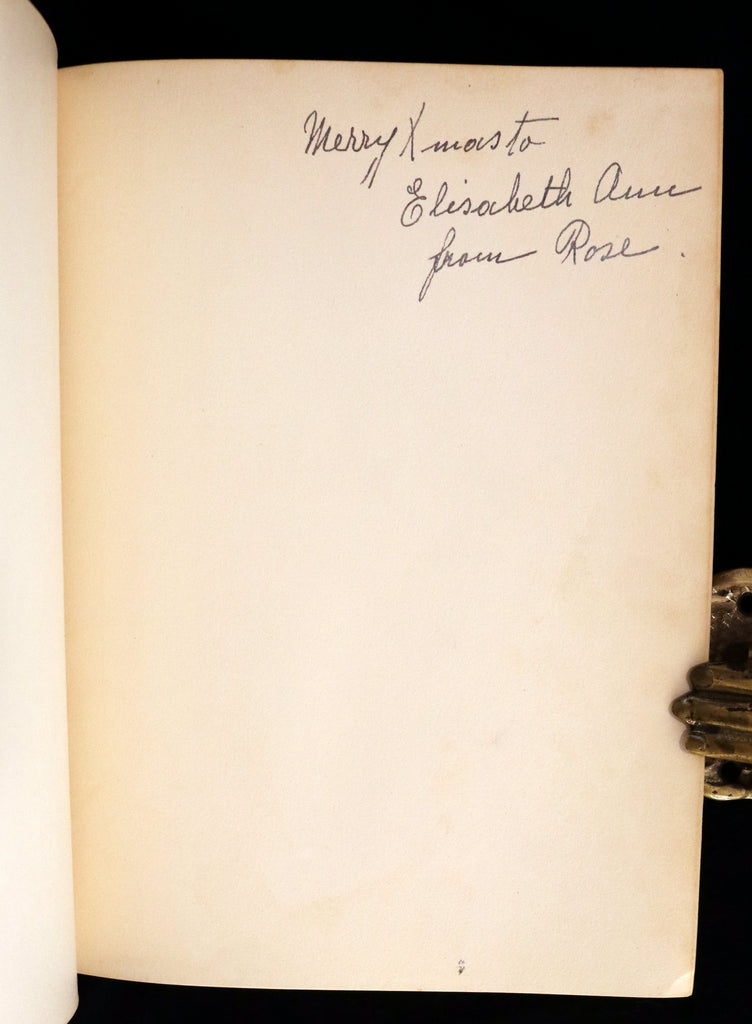 Merry Xmas to
Elisabeth Ann
from Rose.